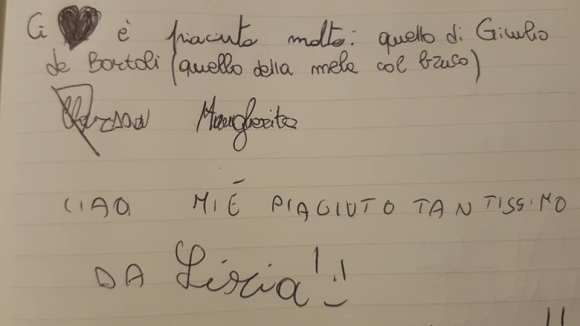 Ci è piaciuto molto: quello di Giulio
de Bortoli (quello della mela col bruco)
Margherita
CIAO MI É PIACIUTO TANTISSIMO
DA Licia!